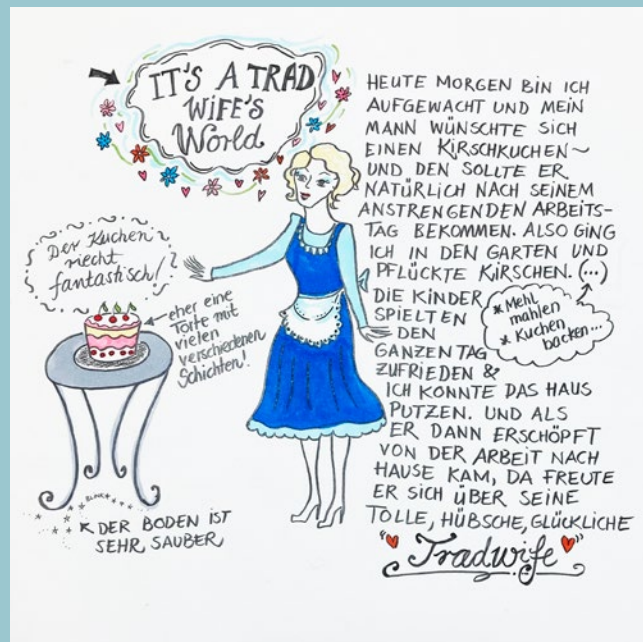 IT'S A TRAD
WIFE'S
World
HEUTE MORGEN BIN ICH
AUFGEWACHT UND MEIN
MANN WÜNSCHTE SICH
EINEN KIRSCHKUCHEN~
UND DEN SOLLTE ER
NATÜRLICH NACH SEINEM
ANSTRENGENDEN ARBEITS-
TAG BEKOMMEN. ALSO GING
ICH IN DEN GARTEN UND
PFLÜCKTE KIRSCHEN. (...)
* Mehl
mahlen
* Kuchen
backen...
DIE KINDER
SPIELTEN
DEN
GANZEN TAG
ZUFRIEDEN &
ICH KONNTE DAS HAUS
PUTZEN. UND ALS
ER DANN ERSCHÖPFT
VON DER ARBEIT NACH
HAUSE KAM, DA FREUTE
ER SICH ÜBER SEINE
TOLLE, HÜBSCHE, GLÜCKLICHE
"Tradwife"
Der Kuchen
riecht
fantastisch!
eher eine
Torte mit
vielen
verschiedenen
Schichten!
BLINK
DER BODEN IST
SEHR SAUBER